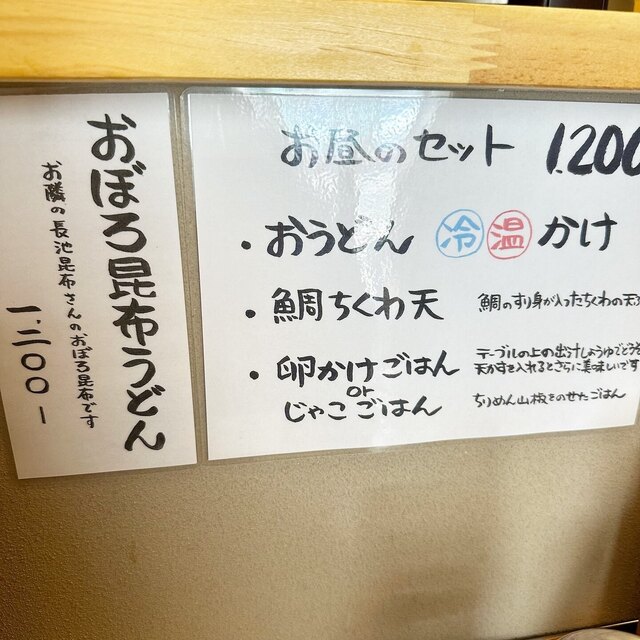 おぼろ昆布うどん
お隣の長池昆布さんのおぼろ昆布です
一、二〇〇ー
お昼のセット 1.200
・おうどん 冷 温 かけ
・鯛ちくわ天 鯛のすり身が入ったちくわの天
・卵かけごはん テーブルの上の出汁しょうゆでどうぞ
天かすを入れるとさらに美味いです
or
じゃこごはん ちりめん山椒をのせたごはん